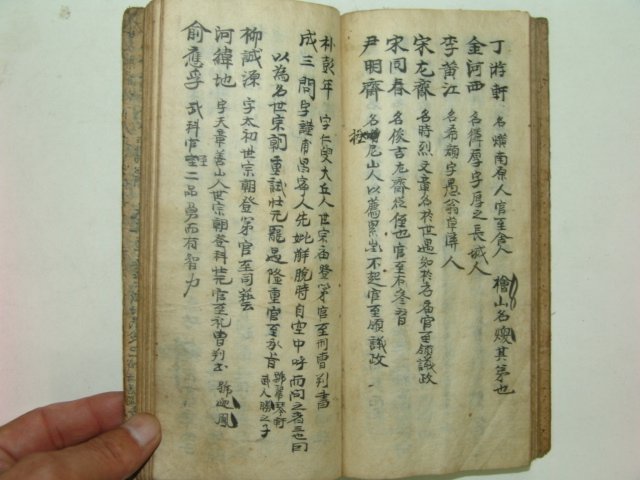 丁游軒 名熿南原人官至舍人 檜山名煥其弟也
金河西 名麟厚字厚之長城人
李黃江 名希顔字愚翁草溪人
宋尤齋 名時烈文章名於世遇知於 官至領議政
宋同春 名浚吉尤齋從侄也官至右 
尹明齋 名拯尼山人以薦累 不起官至領議政
朴彭年 字仁叟大丘人世宗 登第官至刑曹判書
成三問 字謹甫昌寧人先妣解脫時自空中呼而問之者三也因
以為名世宗朝重試壯元 遇隆重官至承旨 號 琴軒 武人勝之子
柳誠源 字太初世宗朝登第官至司藝云
河緯地 字天章善山人世宗朝登科壯元官至礼曺判書 號 鳳
俞應孚 武科官至二品勇而有智力